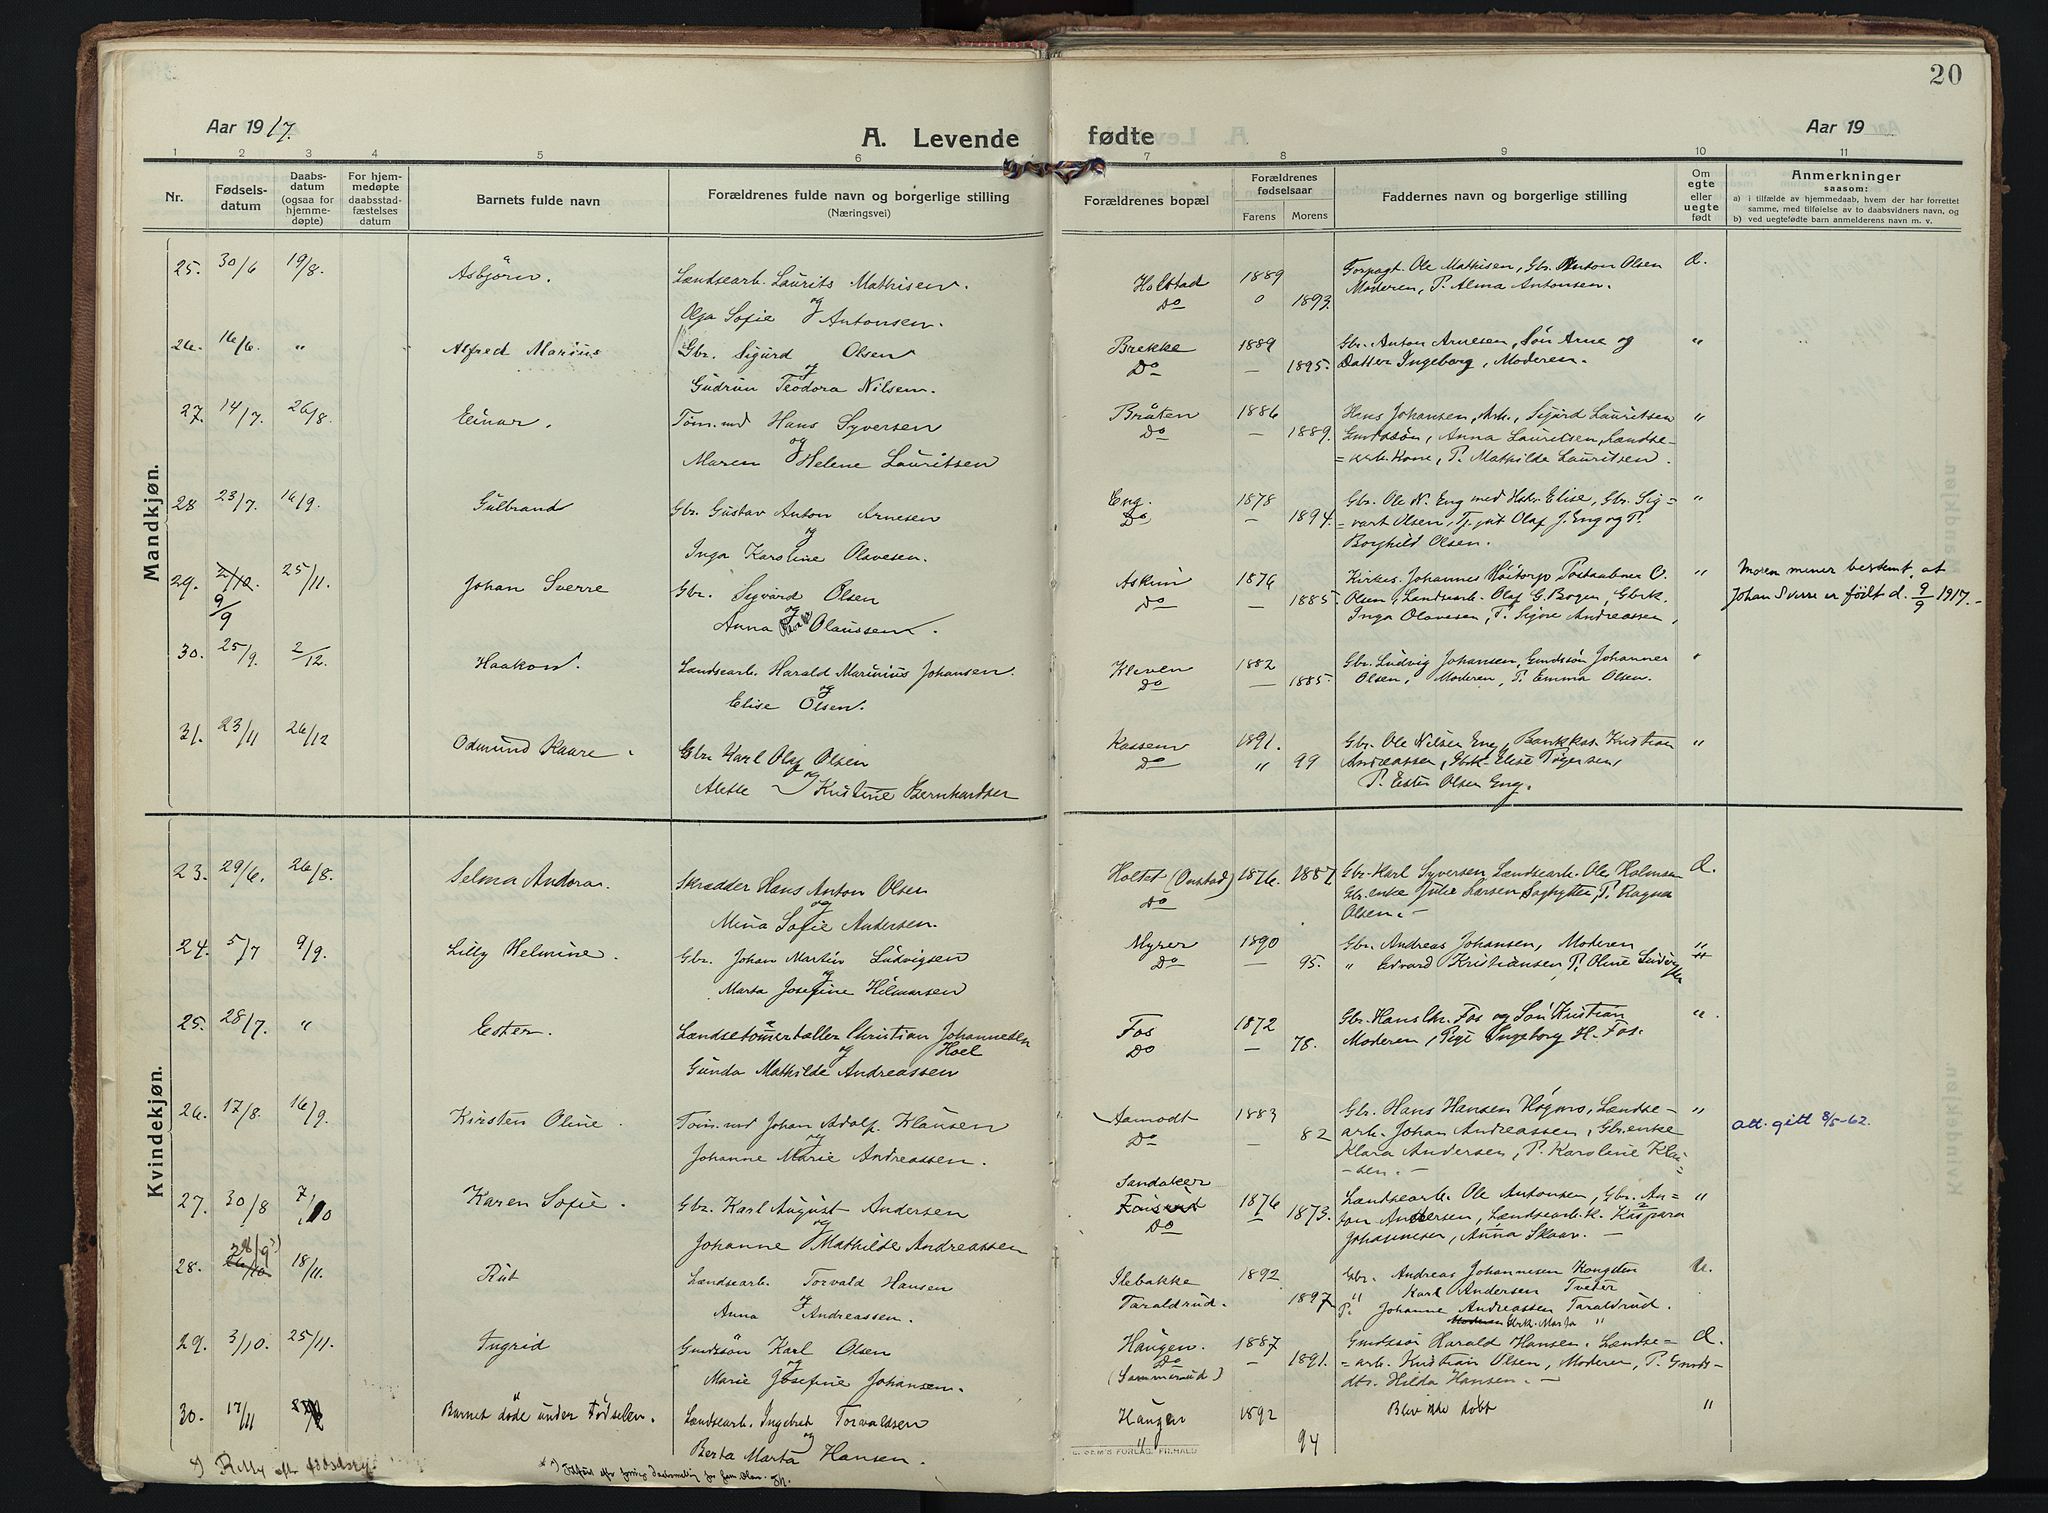 20
Aar 1917.
A. Levende fødte
Aar 19
1 2 3 4 5 6 7 8 9 10 11
Nr.
Fødsels-
datum
Daabs-
datum
(ogsaa for
hjemme-
døpte)
For hjem-
medøpte
daabsstad-
fæstelses
datum
Barnets fulde navn
Forældrenes fulde navn og borgerlige stilling
(Næringsvei)
Forældrenes bopæl
Forældrenes
fødselsaar
Farens Morens
Faddernes navn og borgerlige stilling
Om
egte
eller
uegte
født
Anmerkninger
saasom:
a) i tilfælde av hjemmedaab, hvem der har forrettet
samme, med tilføielse av to daabsvidners navn, og
b) ved uegtefødte barn anmelderens navn m. v.
Mandkjøn.
25. 30/6 19/8. Asbjörn. Lændsearb. Laurits Mathisen. Holstad 1889 Forpagt. Ole Mathisen, Gbr. Anton Olsen
og Do 1893. Moderen, P. Alma Antonsen.
Olga Sofie Antonsen.
26. 16/6. " Alfred Marius Gbr. Sigurd Olsen Brekke 1889 Gbr. Anton Arnesen, Søn Arne og "
og Do — 1895. Datter Ingeborg, Moderen.
Gudrun Teodora Nilsen.
27. 14/7. 26/8. Einar. Töm.md Hans Syversen Bråten 1886 Hans Johansen, Arb., Sigurd Lauritsen "
og Do — 1889. Gmdssøn, Anna Lauritsen, Lændse-
Maren Helene Lauritsen =arb. Kone, P. Mathilde Lauritsen.
28 23/7. 16/9. Gulbrand Gbr. Gustav Anton Arnesen Eng. 1878 Gbr. Ole N. Eng med Hstr. Elise, Gbr. Sig= "
og Do — 1894. =vart Olsen, Tj.jut Olaf J. Eng og P.
Inga Karoline Olavesen. Borghild Olsen.
29. 2/10. 25/11. Johan Sverre Gbr. Sigvard Olsen Askim 1876 Kirkes. Johannes Höitorp Postaabner O. " Moren mener bestemt, at
9/9 og Do — 1885. Olsen, Landsearb. Olaf G. Bogen, Gbrk. Johan Sverre er født d. 9/9 1917.-
Anna Olaussen. Inga Olavesen, P. Signe Andreassen,
30. 25/9. 2/12. Haakon. Lændsearb. Harald Marinius Johansen. Kleven 1882 Gbr. Ludvig Johansen, Gmdssön Johannes "
og Do — 1885. Olsen, Moderen, P. Emma Olsen.
Elise Olsen.
31. 23/11 26/12 Odmund Kaare. Gbr. Karl Olaf Olsen Kassem 1891. Gbr. Ole Nilsen Eng, Bankkas. Kristian "
og Do " 99 Andreassen, Gbrk. Elise Tögersen,
Alette Kristine Bernhardsen P. Ester Olsen Eng.
Kvindekjøn.
23. 29/6. 26/8. Selma Andora. Skrædder Hans Anton Olsen Holtet (Onstad) 1876. 1887. Gbr. Karl Syversen Lændsearb. Ole Kolmsen
og Do Gbr.enke Julie Larsen Saghytten, P. Ragna
Mina Sofie Andersen. Olsen.-
24. 5/7 9/9. Lilly Helmine. Gbr. Johan Martin Ludvigsen Myrer 1890 Gbr. Andreas Johansen, Moderen "
og Do 95. " Edvard Kristiansen, P. Oline
Marta Josefine Hilmarsen
25. 28/7. " Ester. Lændsetömmertæller Christian Johannesen Fos 1872 Gbr. Hans Chr. Fos og Søn Kristian "
og Hoel Do — 78. Moderen, Pige Ingeborg H. Fos.
Gunda Mathilde Andreassen
26. 17/8. 16/9 Kirsten Oline. Töm.md Johan Adolf Klausen Aamodt 1883 Gbr. Hans Hansen Högmo, Lændse- " Att. gitt 8/5-62.
og Do — 82 arb. Johan Andreassen, Gbr.enke
Johanne Marie Andreassen. Klara Andersen, P. Karoline Klau=
-sen.-
27. 30/8 7/10 Karen Sofie. Gbr. Karl August Andersen Sandaker 1876 Lændsearb. Ole Antonsen, Gbr. An= "
og Do — 1873. ton Andersen, Lændsearb.k. Kaspara
Johanne Mathilde Andreassen Johannesen, Anna Skaar. —
28. 28/9 18/11. Rut Lændsearb. Torvald Hansen Ilebakke 1892 Gbr. Andreas Johannesen Kongsten u.
og Taraldrud. 1897 " Karl Andersen Tveter
Anna Andreassen. P. Johanne Andreassen Taraldrud.
Moderen Gbrk. Marta "
29. 3/10. 25/11. Ingrid Gmdssön Karl Olsen Haugen. 1887 Gmdssön Harald Hansen, Lændse=
og Do — 1891. =arb. Kristian Olsen, Moderen, P. Gmds-
Marie Josefine Johansen. (Sammerud) dtr. Hilda Hansen. —
30. 17/11 Barnet döde under Födselen. Lændsearb. Ingebret Torvaldsen Haugen 1892 Blev ikke döbt "
og " 94
Berta Marta Hansen.
SEM'S FORLAG. FR.HALD